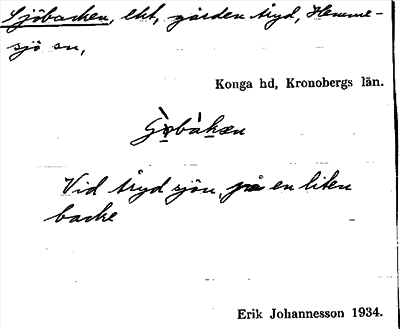 Sjöbacken, lht, gården Åryd, Hemme-
sjö sn,
Konga hd, Kronobergs län.
Vid Åryd sjön, på en liten
backe
Erik Johannesson 1934.